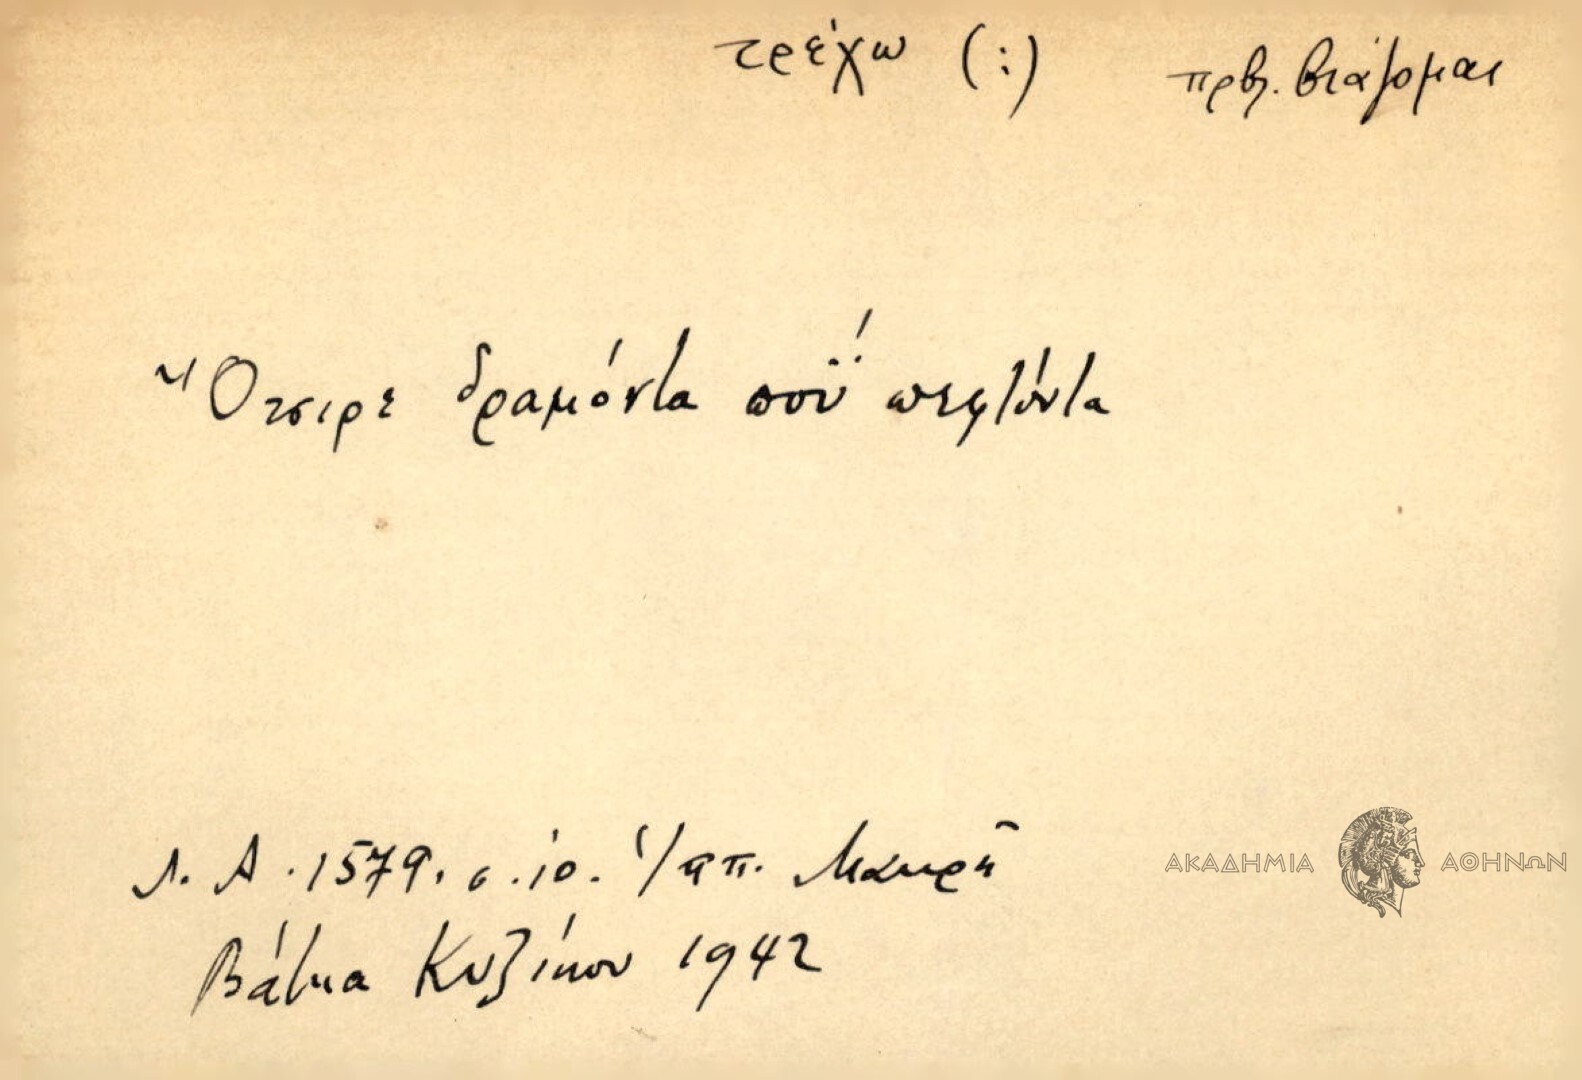 τρέχω (:) πρβλ. βιάζομαι
Ὅτσιρε δραμόντα ποῢ πεφτόντα
Λ. Α. 1579, σ. 10. Ἱ/απ. Μακρῆ
Βάτικα Κυζίκου 1942
ΑΚΑΔΗΜΙΑ ΑΘΗΝΩΝ